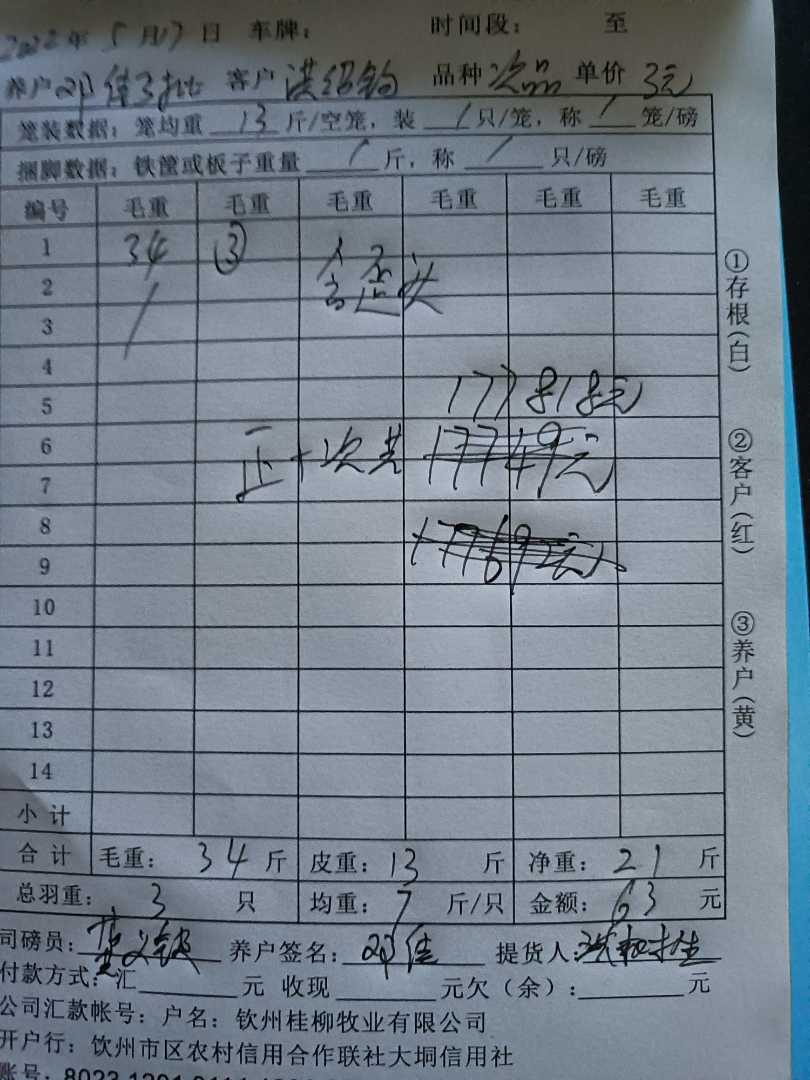 2022年5月17日 车牌： 时间段： 至
养户 邓佳3批 客户 洪绍钧 品种 次品 单价 3元
笼装数据：笼均重 13 斤/空笼，装 / 只/笼，称 / 笼/磅
捆脚数据：铁筐或板子重量 / 斤，称 / 只/磅
编号 毛重 毛重 毛重 毛重 毛重 毛重
1 34 ③
2 含歪头
3
4
5 177818元
6 正+次共 177749元
7
8
9
10
11
12
13
14
小计
合计 毛重： 34 斤 皮重： 13 斤 净重： 21 斤
总羽重： 3 只 均重： 7 斤/只 金额： 63 元
司磅员： 养户签名： 邓佳 提货人：
付款方式：汇 元 收现 元欠（余）： 元
公司汇款帐号：户名：钦州桂柳牧业有限公司
开户行：饮州市区农村信用合作联社大垌信用社
账号：
①存根（白）
②客户（红）
③养户（黄）